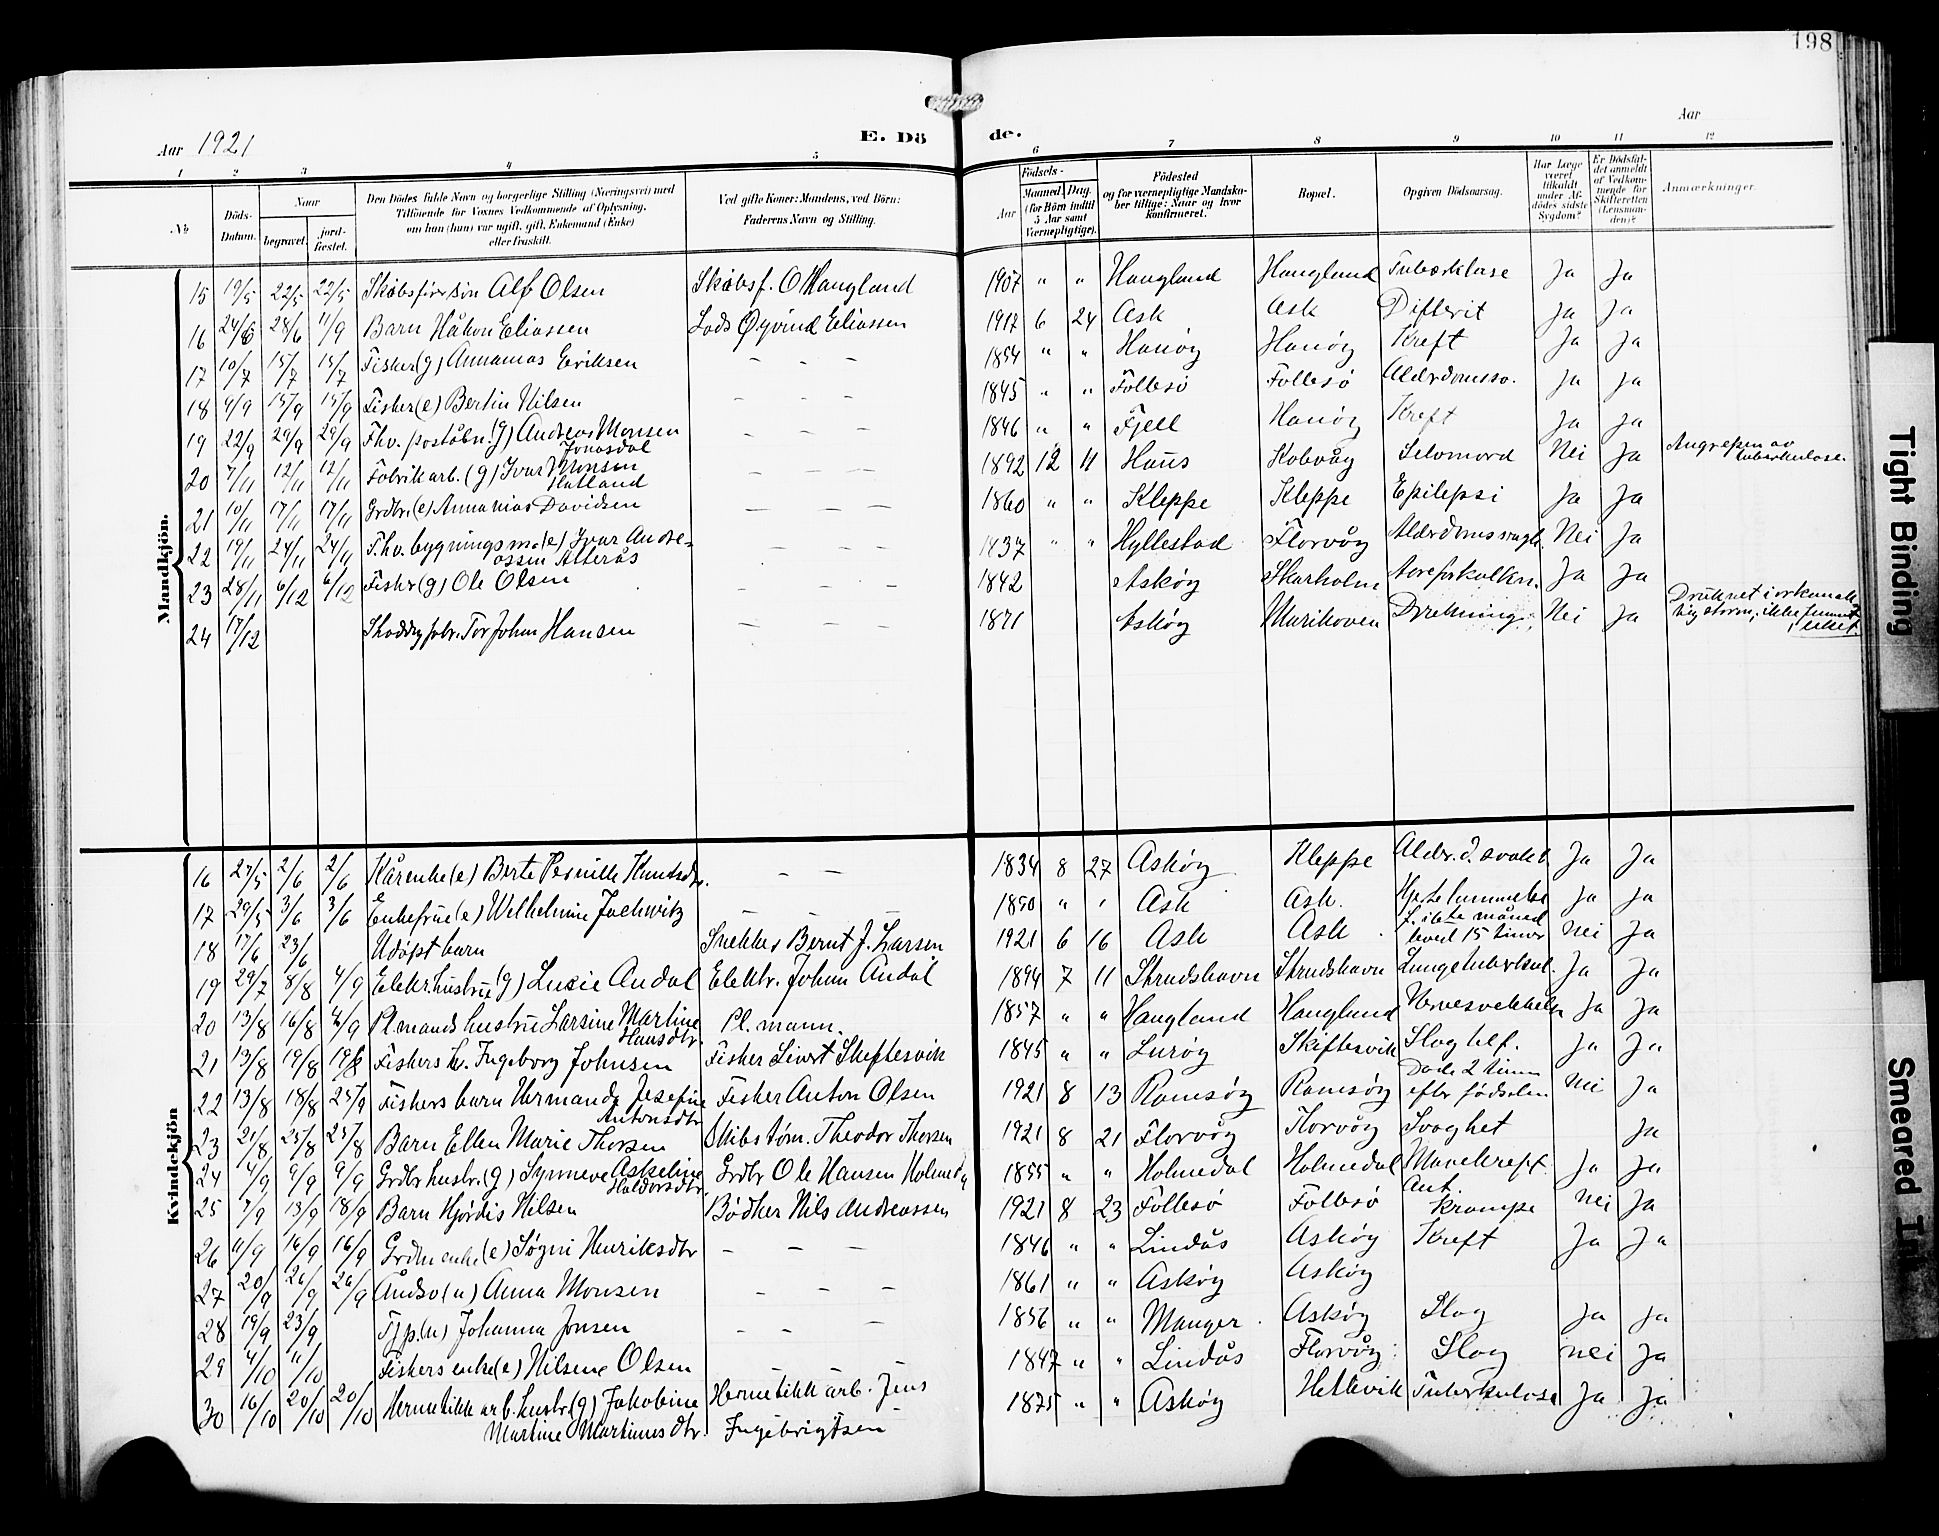 198
Aar 1921
E. Dö
de.
Aar
1 2 3 4 5 6 7 8 9 10 11 12
No.
Döds-Datum.
Naar
begravet.
jordfæstet.
Den Dödes fulde Navn og borgerlige Stilling (Næringsvei) med
Tilföiende for Voxnes Vedkommende af Oplysning,
om han (hun) var ugift, gift, Enkemand (Enke)
eller fraskilt.
Ved gifte Koner: Mandens, ved Börn:
Faderens Navn og Stilling.
Födsels-
Aar
Maaned. Dag.
(for Börn indtil 5 Aar samt Værnepligtige).
Födested
og for værnepligtige Mandskaber tillige: Naar og hvor konfirmeret.
Bopæl.
Opgiven Dödsaarsag.
Har Læge været tilkaldt under Afdödes sidste Sygdom?
Er Dödsfaldet anmeldt af Vedkommende for Skifteretten (Lensmanden)?
Anmærkninger.
Mandkjön.
15 19/5 22/5 22/5 Skibsförer sön Alf Olsen Skibsf. O Haugland 1907 " " Haugland Haugland Tuberklose Ja Ja
16 24/6 28/6 11/9 Barn Håkon Eliassen Lods Øyvind Eliassen 1917 6 24 Ask Ask Difterit Ja Ja
17 10/7 15/7 15/7 Fisker (g) Annanias Eriksen – – – 1854 " " Hanøy Hanøy Kreft Ja Ja
18 9/9 15/9 15/9 Fisker (e) Bertin Nilsen – – – 1845 " " Follesø Follesø Alderdomssv. Ja Ja
19 22/9 29/9 29/9 Fhv. poståbn. (g) Andreas Monsen Jonasdal – – – 1846 " " Fjell Hanøy Kreft Ja Ja
20 7/11 12/11 12/11 Fabrikarb. (g) Ivar Monsen Hatland – – – 1892 12 11 Haus Kobvåg Selvmord Nei Ja Angrepen av tuberkulose.
21 10/11 17/11 17/11 Grdbr. (e) Annanias Davidsen – – – 1860 " " Kleppe Kleppe Epilepsi Ja Ja
22 19/11 24/11 24/11 F.hv. bygningsm. (e) Ivar Andreassen Atterås – – – 1837 " " Hyllestad Florvåg Alderdomssvagh. Nei Ja
23 28/11 6/12 6/12 Fisker (g) Ole Olsen – – – 1842 Askøy Skarholm Aareforkalkn. Ja Ja
24 17/12 Shoddyfabr. Tor Johan Hansen – – – 1871 Askøy Marikoven Drukning Nei Ja Druknet i orkanaktig storm, ikke funnet i liket.
Kvindekjön
16 27/5 2/6 2/6 Kårenke (e) Berte Pernille Knutsdtr. – – 1834 8 27 Askøy Kleppe Alder.d.svakh. Ja Ja
17 29/5 3/6 3/6 Enkefrue (e) Wilhelmine Jachwitz – – – 1850 " " Ask Ask. Hjertelammelse Ja Ja
18 17/6 23/6 Udöpt barn Snekker Bernt J. Larsen 1921 6 16 Ask Ask levd 15 timer Nei Ja
19 29/7 8/8 4/9 Elektr. hustru (g) Lucie Andal Elektr. Johan Andal 1894 7 11 Strudshavn Strudshavn Lungetuberkul. Ja Ja
20 13/8 16/8 4/9 Pl.mands hustru Larsine Martine Hansdtr. Pl. mann. 1857 " " Haugland Haugland Nervesvekkelse Ja Ja
21 13/8 19/8 19/8 Fiskers h. Ingeborg Johnsen Fisker Sivert Skiftesvik 1845 " " Lurøy Skiftesvik Slagtilf. Ja Ja
22 13/8 18/8 25/9 Fiskers barn Hermande Josefine Antonsdtr Fisker Anton Olsen 1921 8 13 Ramsøy Ramsøy Døde 2 timer efter fødselen Nei Ja
23 21/8 25/8 25/8 Barn Ellen Marie Thorsen Skibstøm. Theodor Thorsen 1921 8 21 Florvåg Florvåg Svaghet Ja
24 4/9 9/9 9/9 Grdbr hustr. (g) Synneve Askeline Haldorsdtr. Grdbr Ole Hansen Holmedal 1855 " " Holmedal Holmedal Mavekreft. Ja Ja
25 7/9 13/9 18/9 Barn Hjördis Nilsen Bødker Nils Andreassen 1921 8 23 Follesø Follesø Ant. krampe Nei Ja
26 11/9 16/9 16/9 Grdbr enke (e) Søgni Henriksdtr – – – 1846 " " Lindås Askøy Kreft Ja Ja
27 20/9 26/9 26/9 Åndsv (u) Anna Monsen – – – 1861 " " Askøy Askøy
28 19/9 23/9 Tjp. (u) Johanna Jonsen – – – 1856 " " Manger Askøy Slag Ja Ja
29 4/10 11/10 Fiskers enke (e) Nilsine Olsen – – – 1847 " " Lindås Florvåg Slag Nei Ja
30 16/10 20/10 20/10 Hermetikk arb. hustr. (g) Jakobine Hermetikk arb. Jens 1875 " " Askøy Hetlevik Tuberkulose Ja Ja
Martine Martinusdtr. Ingebrigtsen
Tight Binding
Smeared Ink